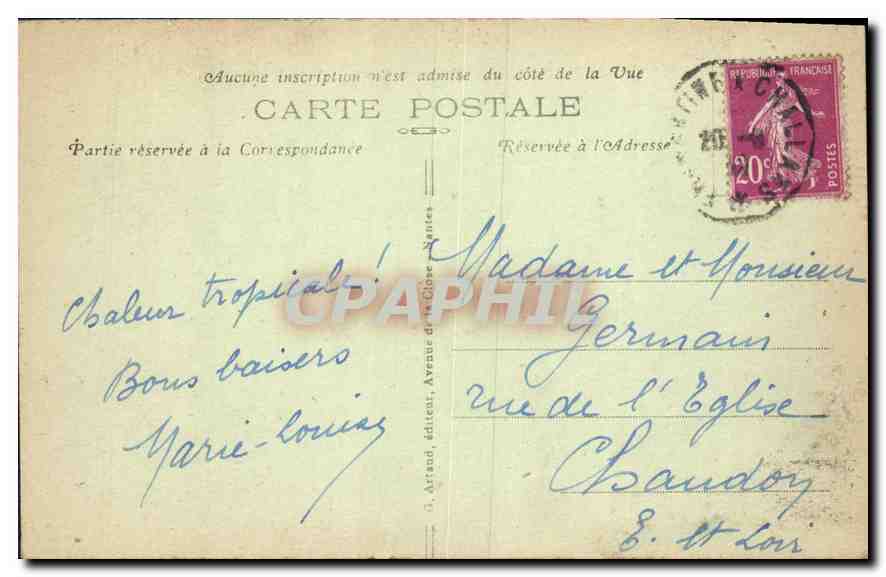 Aucune inscription n'est admise du côté de la Vue
CARTE POSTALE
Partie réservée à la Correspondance
Réservée à l'Adresse
REPUBLIQUE FRANÇAISE
20c
POSTES
CHALLANS
Chaleur tropicale!
Bons baisers
Marie-Louise
G. Artaud, éditeur, Avenue de la Close - Nantes
Madame et Monsieur
Germain
rue de l'Eglise
Chaudon
E. et Loir
CPAPHIL